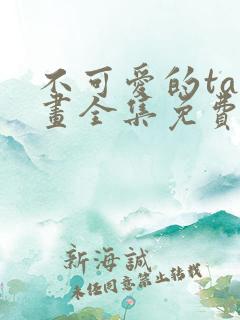 不可愛的ta
畫全集免費
新海誠
未经同意禁止转载